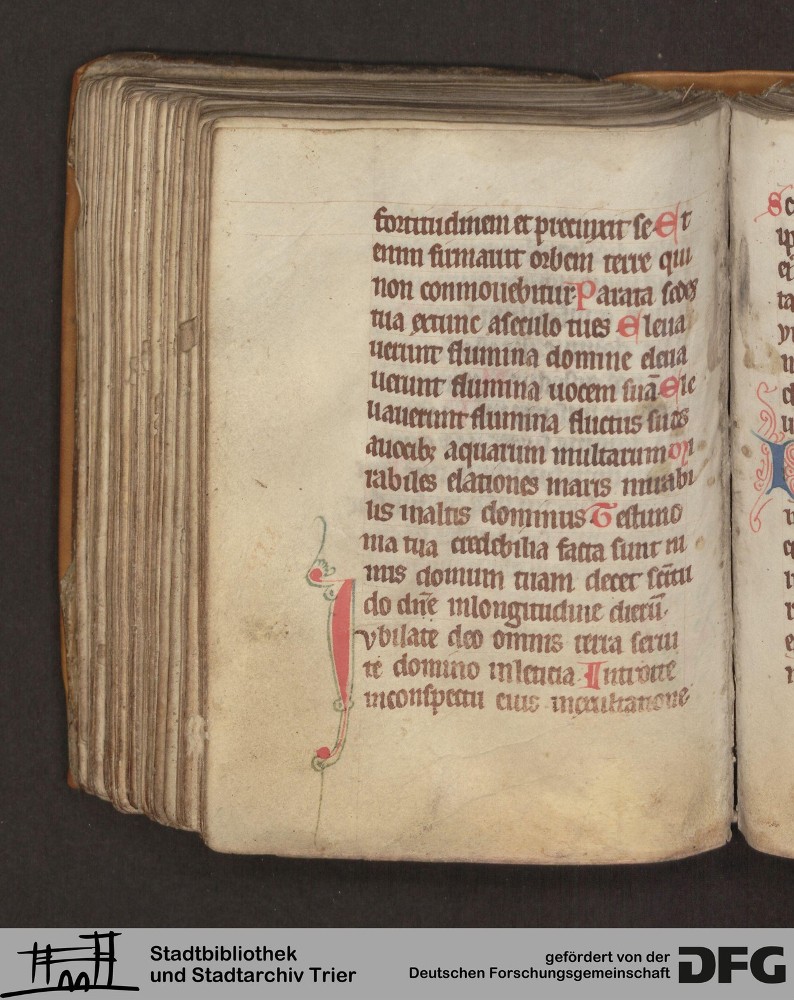 fortitudinem et precinxit se Et
enim firmauit orbem terre qui
non conmouebitur Parata sedes
tua extunc aseculo tu es Eleua
uerunt flumina domine eleua
uerunt flumina uocem suā Ele
uauerunt flumina fluctus suos
auocib; aquarum multarum Mi
rabiles elationes maris mirabi
lis inaltis dominus Testimo
nia tua credebilia facta sunt ni
mis domum tuam decet sc̄itu
do dn̄e inlongitudine dierū.
Iubilate deo omnis terra serui
te domino inleticia Introite
inconspectu eius inexultatione
Stadtbibliothek
und Stadtarchiv Trier
gefördert von der
Deutschen Forschungsgemeinschaft
DFG